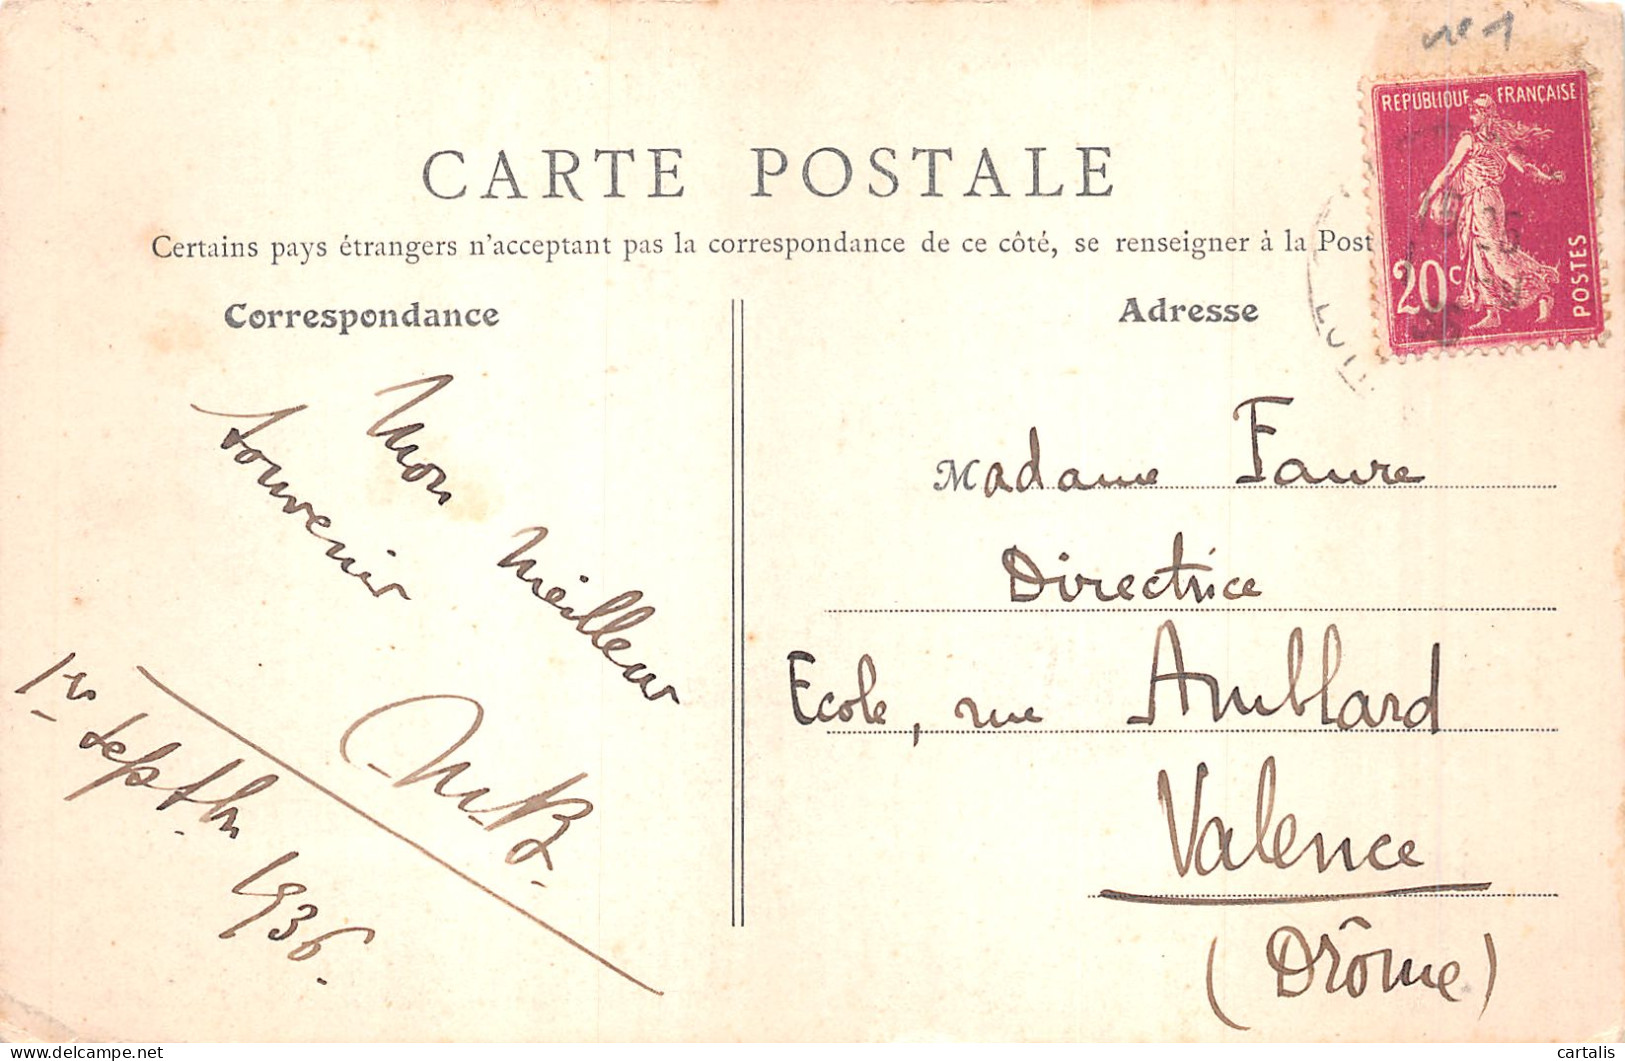 CARTE POSTALE
Certains pays étrangers n'acceptant pas la correspondance de ce côté, se renseigner à la Post
Correspondance
Mon meilleur
souvenir
M.B.
1er Septbr 1936.
Adresse
REPUBLIQUE FRANÇAISE
20c
POSTES
Madame Faure
Directrice
Ecole, rue Amblard
Valence
(Drôme)
cartalis